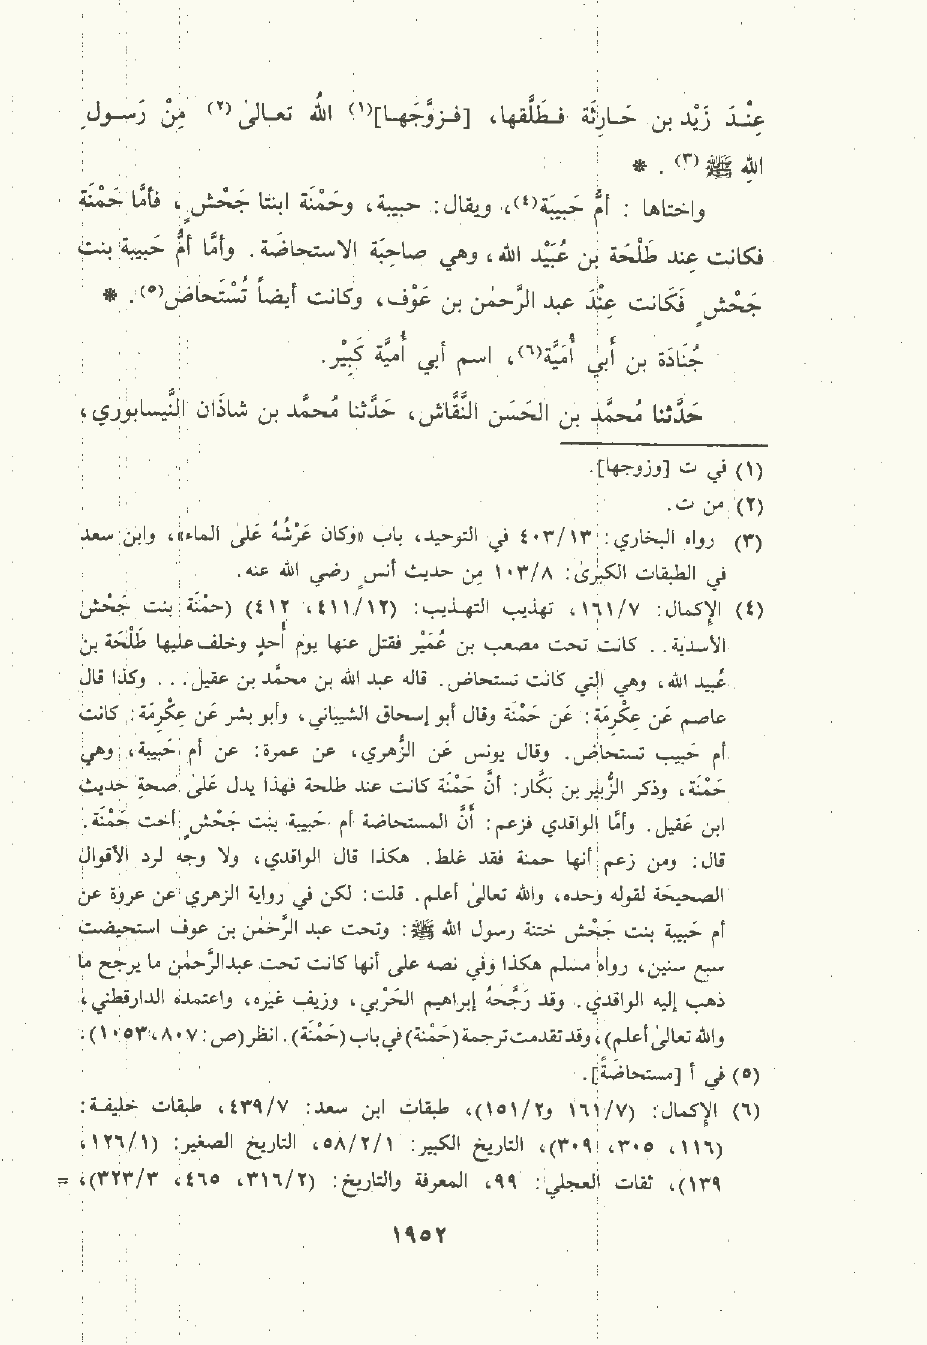 عِنْـدَ زَيْد بن حَـارِثَة فـطَلَّقها، [فـزوَّجَهـا](١) اللهُ تعـالىٰ(٢) مِنْ رَسـول
اللهِ ﷺ(٣). *
واختاها : أمُّ حَبِيبَة(٤)، ويقال: حبيبة، وحَمْنَة ابنتا جَحْشٍ، فأمَّا حَمْنَة
فكانت عند طَلْحَة بن عُبَيْد الله، وهي صاحِبَة الاستحاضَة. وأمَّا أمُّ حَبِيبَة بنت
جَحْشٍ فَكَانت عِنْدَ عبد الرَّحمٰن بن عَوْف، وكانت أيضاً تُسْتَحاض(٥). *
جُنَادَة بن أَبي أُمَيَّة(٦)، اسم أبي أُميَّة كَبِيْر.
حَدَّثنا مُحمَّد بن الحَسَن النَّقَّاش، حَدَّثنا مُحمَّد بن شاذَان النَّيسابوري،
(١) في ت [وزوجها].
(٢) من ت.
(٣) رواه البخاري: ٤٠٣/١٣ في التوحيد، باب «وكان عَرْشُهُ عَلىٰ الماء»، وابن سعد
في الطبقات الكبرىٰ: ١٠٣/٨ مِن حديث أنسٍ رضي الله عنه.
(٤) الإكمال: ١٦١/٧، تهذيب التهـذيب: (٤١١/١٢، ٤١٢) (حمْنَة بنت جَحْش
الأسدية.. كانت تحت مصعب بن عُمَيْر فقتل عنها يوم أُحدٍ وخلف عليها طَلْحَة بن
عُبيد الله، وهي التي كانت تستحاض. قاله عبد الله بن محمَّد بن عقيل... وكذا قال
عاصم عَن عِكْرِمَة: عَن حَمْنَة وقال أبو إسحاق الشيباني، وأبو بشر عَن عِكْرِمَة: كانت
أم حَبيب تستحاض. وقال يونس عَن الزُّهري، عن عمرة: عن أم حَبيبة، وهي
حَمْنَة، وذكر الزُّبير بن بَكَّار: أنَّ حَمْنَة كانت عند طلحة فهذا يدل عَلىٰ صحةِ حديث
ابن عَقيل. وأمَّا الواقدي فزعم: أنَّ المستحاضة أم حَبيبة بنت جَحْشٍ أخت حَمْنَة.
قال: ومن زعم أنها حمنة فقد غلط. هكذا قال الواقدي، ولا وجه لرد الأقوال
الصحيحَة لقوله وحده، والله تعالىٰ أعلم. قلت: لكن في رواية الزهري عن عروة عن
أم حَبيبَة بنت جَحْش ختنة رسول الله ﷺ: وتحت عبد الرَّحمٰن بن عوف استحيضت
سبع سنين، رواه مسلم هكذا وفي نصه على أنها كانت تحت عبدالرَّحمٰن ما يرجح ما
ذهب إليه الواقدي. وقد رَجَّحَهُ إبراهيم الحَرْبي، وزيف غيره، واعتمده الدارقطني،
والله تعالىٰ أعلم)، وقد تقدمت ترجمة (حَمْنة) في باب (حَمْنَة). انظر (ص: ٨٠٧، ١٠٥٣):
(٥) في أ [مستحاضَةً].
(٦) الإكمال: (١٦١/٧ و١٥١/٢)، طبقات ابن سعد: ٤٣٩/٧، طبقات خليفـة:
(١١٦، ٣٠٥، ٣٠٩)، التاريخ الكبير: ٥٨/٢/١، التاريخ الصغير: (١٢٦/١،
١٣٩)، ثقات العجلي: ٩٩، المعرفة والتاريخ: (٣١٦/٢، ٤٦٥، ٣٢٣/٣)، =
١٩٥٢